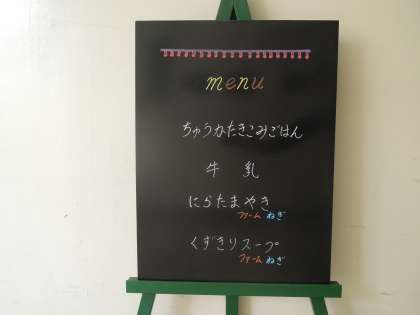 menu
ちゅうかたきこみごはん
牛乳
にらたまやき
ファーム ねぎ
くずきりスープ
ファーム ねぎ